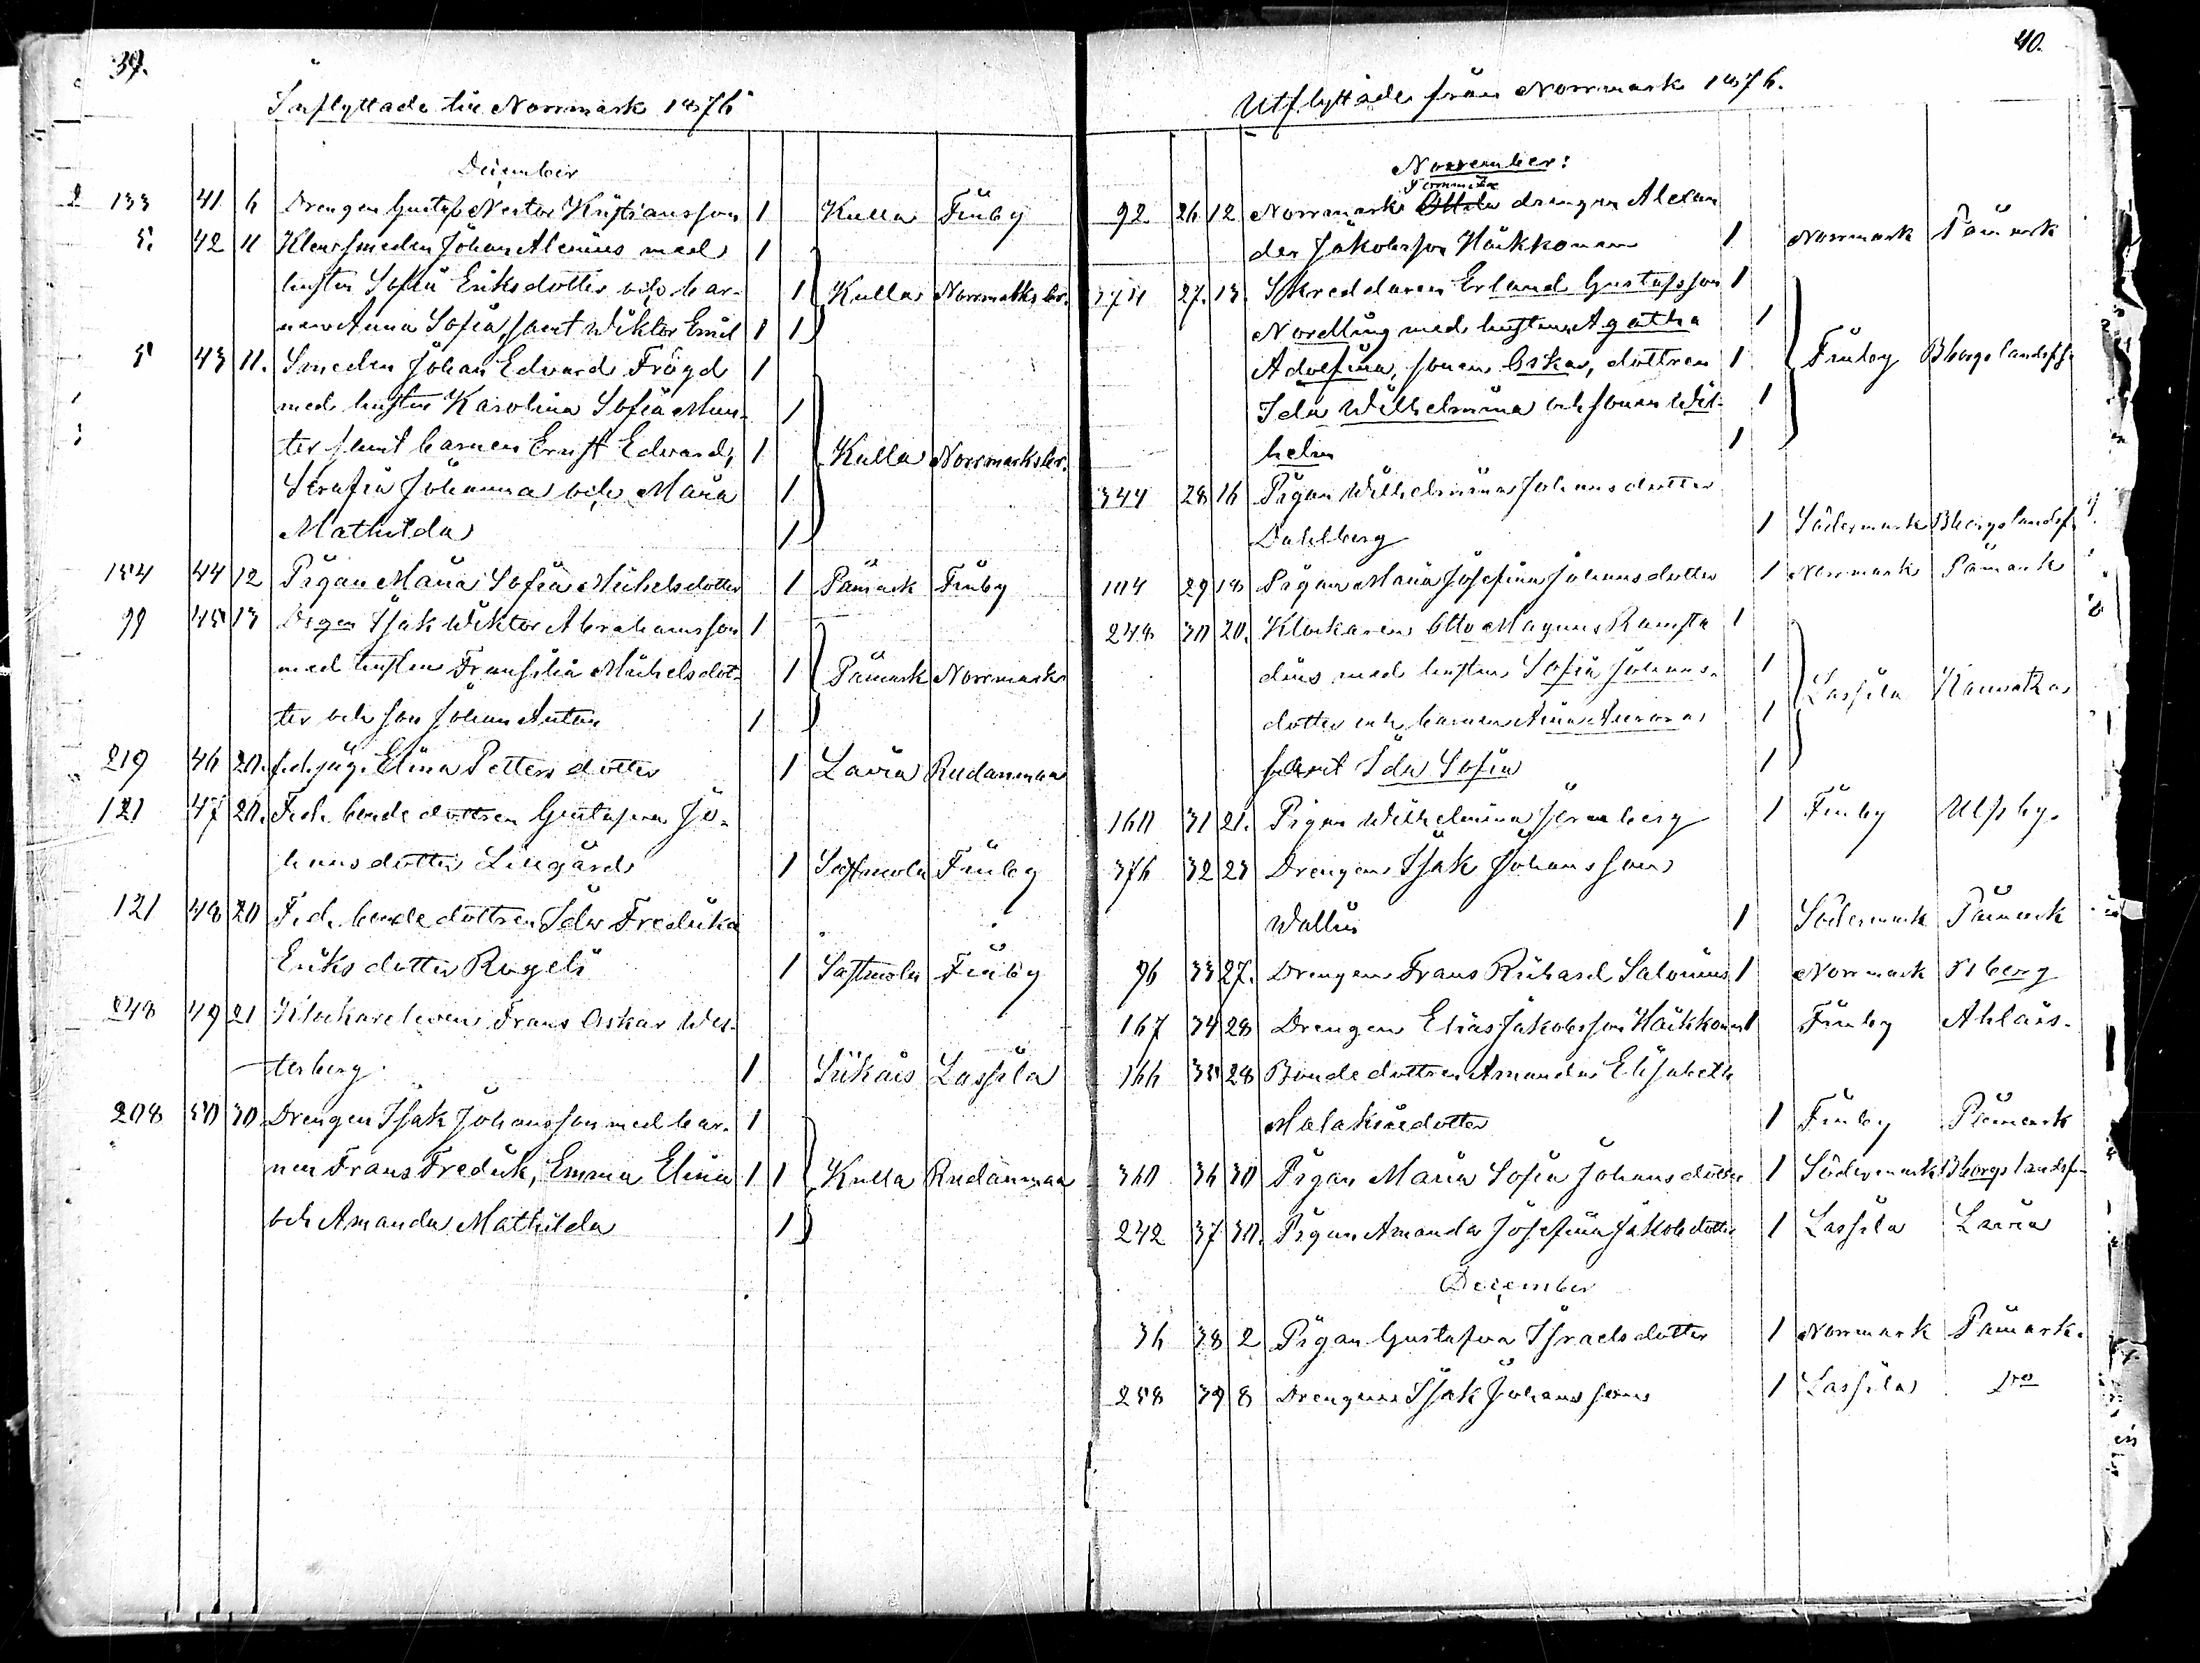 39.
Inflyttade till Norrmark 1876
December
133 41 6 Drengen Gustaf Nestor Kristiansson 1 Kulla Finby
5. 42 11 Klensmeden Johan Alenius med 1
hustru Sofia Eriksdotter och bar- 1 Kulla Norrmarks br.
nen Anna Sofia, samt Wiktor Emil 1 1
5 43 11. Smeden Johan Edvard Frögd 1
med hustru Karolina Sofia Mun- 1
ter samt barnen Ernst Edvard, 1 Kulla Norrmarks br.
Serafia Johanna och Maria 1
Mathilda 1
154 44 12 Pigan Maria Sofia Michelsdotter 1 Påmark Finby
99 45 13 Dregen Isak Wiktor Abrahamsson 1
med hustru Fransilia Michelsdot- 1 Påmark Norrmark
ter och son Johan Anton 1
219 46 20. Elina Petters dotter 1 Lavia Rudanmaa
121 47 20. F.d. bonde dottren Gustafva Jo-
hans dotter Lillgård 1 Sastmola Finby
121 48 20 F.d. bonde dottren Ida Fredrika
Eriks dotter Rogeli 1 Sastmola Finby
248 49 21 Klockareleven Frans Oskar Wes-
terberg. 1 Siikais Lassila
208 50 30 Drengen Isak Johansson med bar- 1
nen Frans Fredrik, Emma Elina 1 1 Kulla Rudanmaa
och Amanda Mathilda 1
40.
Utflyttade från Norrmark 1876.
November:
92 26 12 Norrmarks drengen Alexan
der Jakobsson Häikkonen 1 Norrmark Påmark
374 27. 13. Skreddaren Erland Gustafsson 1
Nordling med hustru Agatha 1
Adolfina, sonen Oskar, dottren 1 Finby Bborgs landsfs
Ida Wilhelmina och sonen Wil- 1
helm 1
344 28 16 Pigan Wilhelmina Johansdotter
Dahlberg 1 Södermark Bborgs landsf.
104 29 18 Pigan Maria Josefina Johansdotter 1 Norrmark Påmark
248 30 20. Klockaren Otto Magnus Ramsta 1
dius med hustru Sofia Johans- 1 Lassila
dotter och barnen Aina Aurora 1
samt Ida Sofia 1
160 31 21. Pigan Wilhelmina Jernberg 1 Finby Ulfsby.
376 32 23 Drengen Isak Johansson
Wallin 1 Södermark Påmark
96 33 27. Drengen Frans Richard Salonius 1 Norrmark
167 34 28 Drengen Elias Jakobsson Häikkonen 1 Finby Ahlais.
166 35 28 Bonde dottren Amanda Elisabeth
Malakiædotter 1 Finby Påmark
360 36 30 Pigan Maria Sofia Johans dotter 1 Södermark Bborgs landsf
242 37 30. Pigan Amanda Josefina Jakobsdotter 1 Lassila Lavia
December
36 38 2 Pigan Gustafva Israels dotter 1 Norrmark Påmark.
258 39 8 Drengen Isak Johansson 1 Lassila D:o